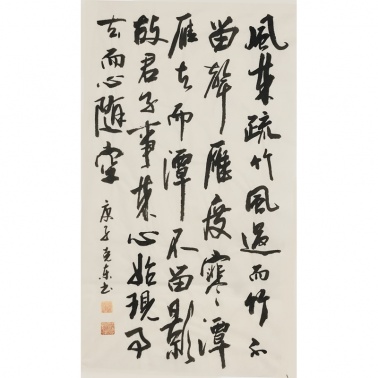 風來疏竹風過而竹不
留聲雁度寒潭
雁去而潭不留影
故君子事來心始現事
去而心隨空
庚子克東书